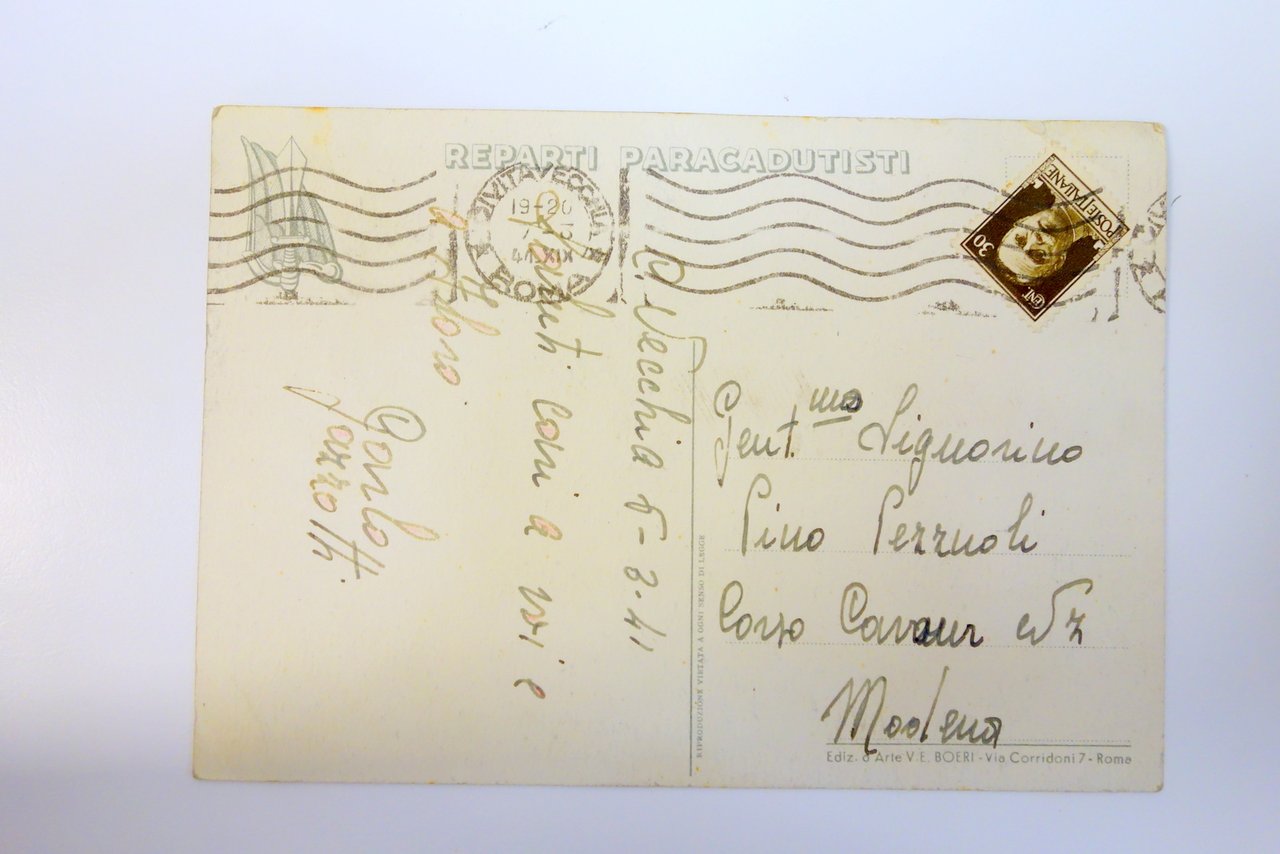 REPARTI PARACADUTISTI
CIVITAVECCHIA
19-20
41 XIX
ROMA
POSTE ITALIANE
30
CENT
C. Vecchia 6-3-41
Saluti cari a voi e
a
Carlo
Gent.mo Signorino
Pino Pezzuoli
Corso Cavour N 7
Modena
RIPRODUZIONE VIETATA A OGNI SENSO DI LEGGE
Ediz. d'Arte V. E. BOERI - Via Corridoni 7 - Roma